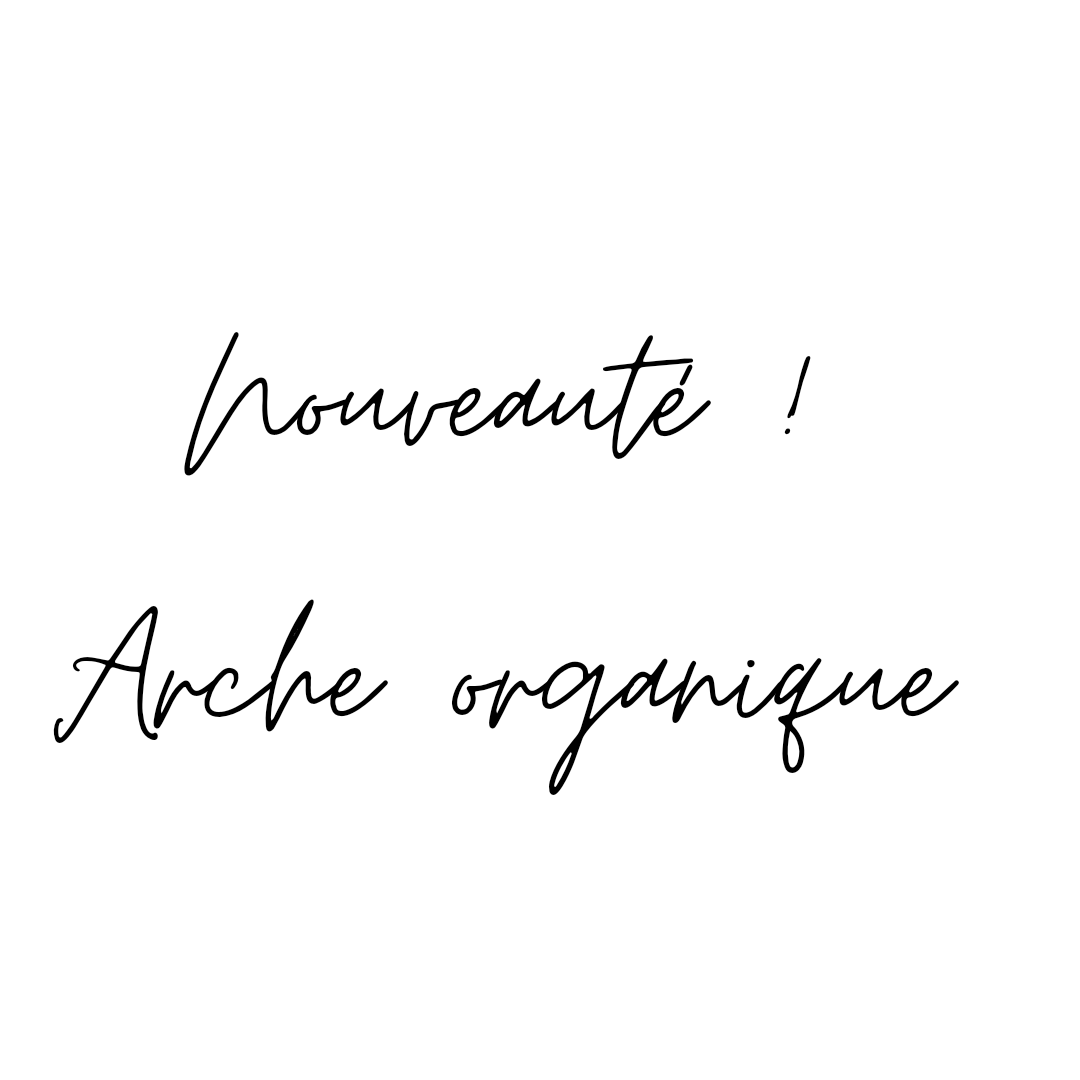 Nouveauté !
Arche organique